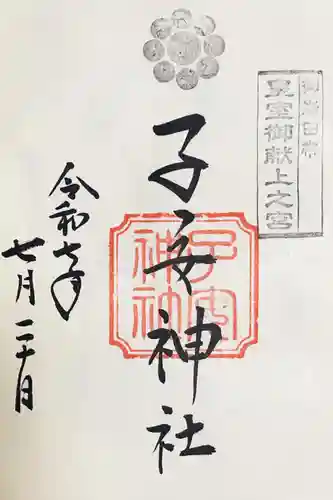 皇室御献上之宮
子安神社
子安
神社
令和七年
七月二十日